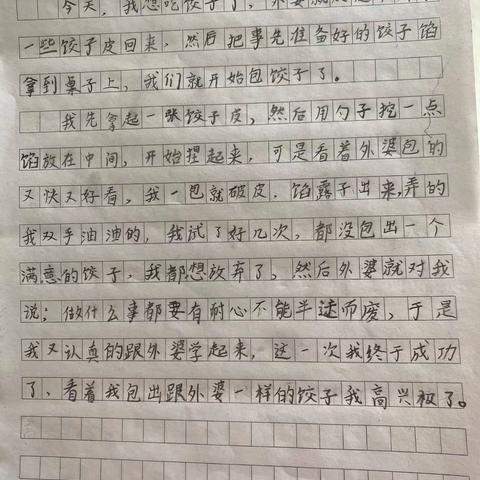 今天，我想吃饺子了，
一些饺子皮回来，然后把事先准备好的饺子馅
拿到桌子上，我们就开始包饺子了。
我先拿起一张饺子皮，然后用勺子挖一点
馅放在中间，开始捏起来，可是看着外婆包的
又快又好看，我一包就破皮，馅露子出来，弄的
我双手油油的，我试了好几次，都没包出一个
满意的饺子，我都想放弃了，然后外婆就对我
说；做什么事都要有耐心不能半途而废，于是
我又认真的跟外婆学起来，这一次我终于成功
了，看着我包出跟外婆一样的饺子我高兴极了。